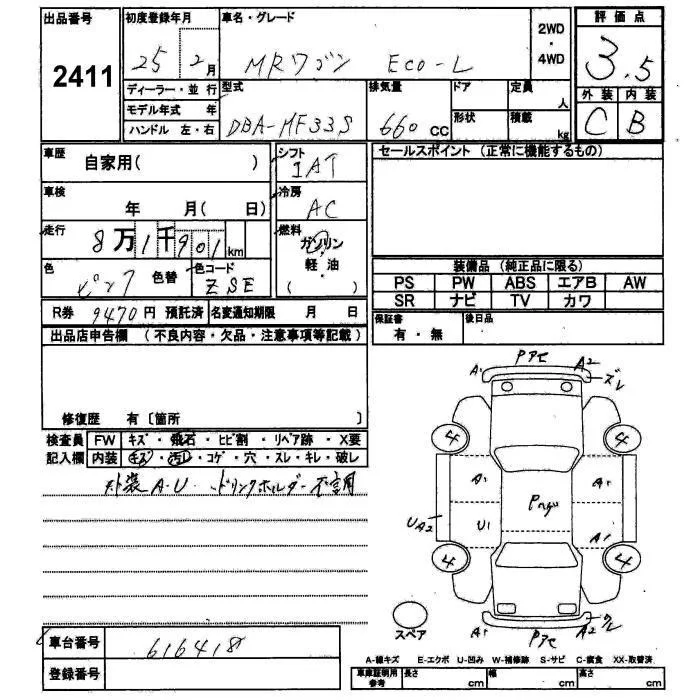 出品番号 初度登録年月 車名・グレード 2WD ・ 4WD 評価点
2411 25 2月 MRワゴン Eco-L 3.5
ディーラー・並行 型式 排気量 ドア 定員 人 外装 内装
モデル年式 年 DBA-MF33S 660 CC 形状 積載 kg C B
ハンドル 左・右
車歴 自家用( ) シフト IAT セールスポイント (正常に機能するもの)
車検 年 月( 日) 冷房 AC
走行 8万1千901km 燃料 ガソリン 軽・油 ( )
色 ピンク 色替 色コード ZSE
装備品 (純正品に限る)
PS PW ABS エアB AW
SR ナビ TV カワ
R券 9470円 預託済 名変通知期限 月 日
保証書 有・無 後日品
出品店申告欄 (不良内容・欠品・注意事項等記載)
修復歴 有〔箇所 〕
検査員 FW キズ・飛石・ヒビ割・リペア跡・X要
記入欄 内装 キズ・汚レ・コゲ・穴・スレ・キレ・破レ
外装A・U ドリンクホルダー不良用
A1 Pアセ A2 ズレ
4 4
A1 A1
Pハゲ
UA2 U1 A1
4 4
スペア A1 Pアセ A2 ワレ
車台番号 616418
登録番号
A-線キズ E-エクボ U-凹み W-補修跡 S-サビ C-腐食 XX-取替済
車庫証明用参考 長さ cm 幅 cm 高さ cm